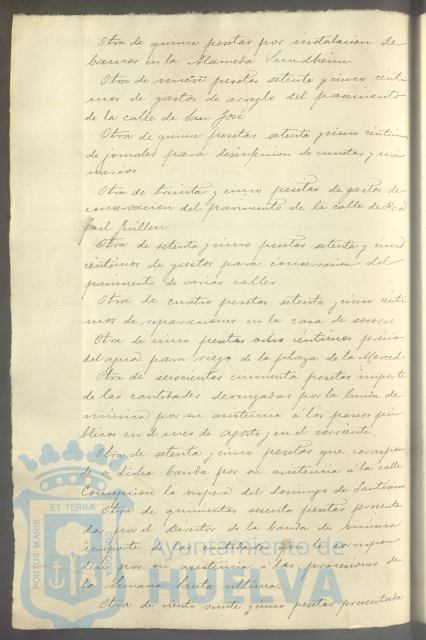 Otra de quince pesetas por instalacion de
bancos en la Alameda Sundheim
Otra de nueve pesetas setenta y cinco cénti
mos de gastos de arreglo del pavimento
de la calle de San José
Otra de quince pesetas setenta y cinco céntimos
de jornales para de cunetas y
Otra de treinta y cinco pesetas de gastos de
conservacion del pavimento de la calle de Ra
fael Guillen
Otra de setenta y cinco pesetas setenta y cinco
céntimos de gastos para conservacion del
pavimento de varias calles
Otra de cuatro pesetas setenta y cinco cénti
mos de reparaciones en la casa de socorro
Otra de cinco pesetas ocho céntimos precio
del agua para riego de la plaza de la Merced
Otra de seiscientas cincuenta pesetas importe
de las cantidades devengadas por la banda de
música por su asistencia á los paseos pú
blicos en el mes de Agosto y en el corriente
Otra de setenta y cinco pesetas que correspon
de á dicha banda por su asistencia á la calle
Concepcion la vispera del Domingo de Santísimo
Otra de quinientas sesenta pesetas presenta
da por el Director de la banda de música
importe de las cantidades que le correspon
den por su asistencia á las procesiones de
la Semana Santa última
Otra de ciento veinte y cinco pesetas presentada
PORTUS MARIS
ET TERRÆ
CUSTODIA
Ayuntamiento de
HUELVA